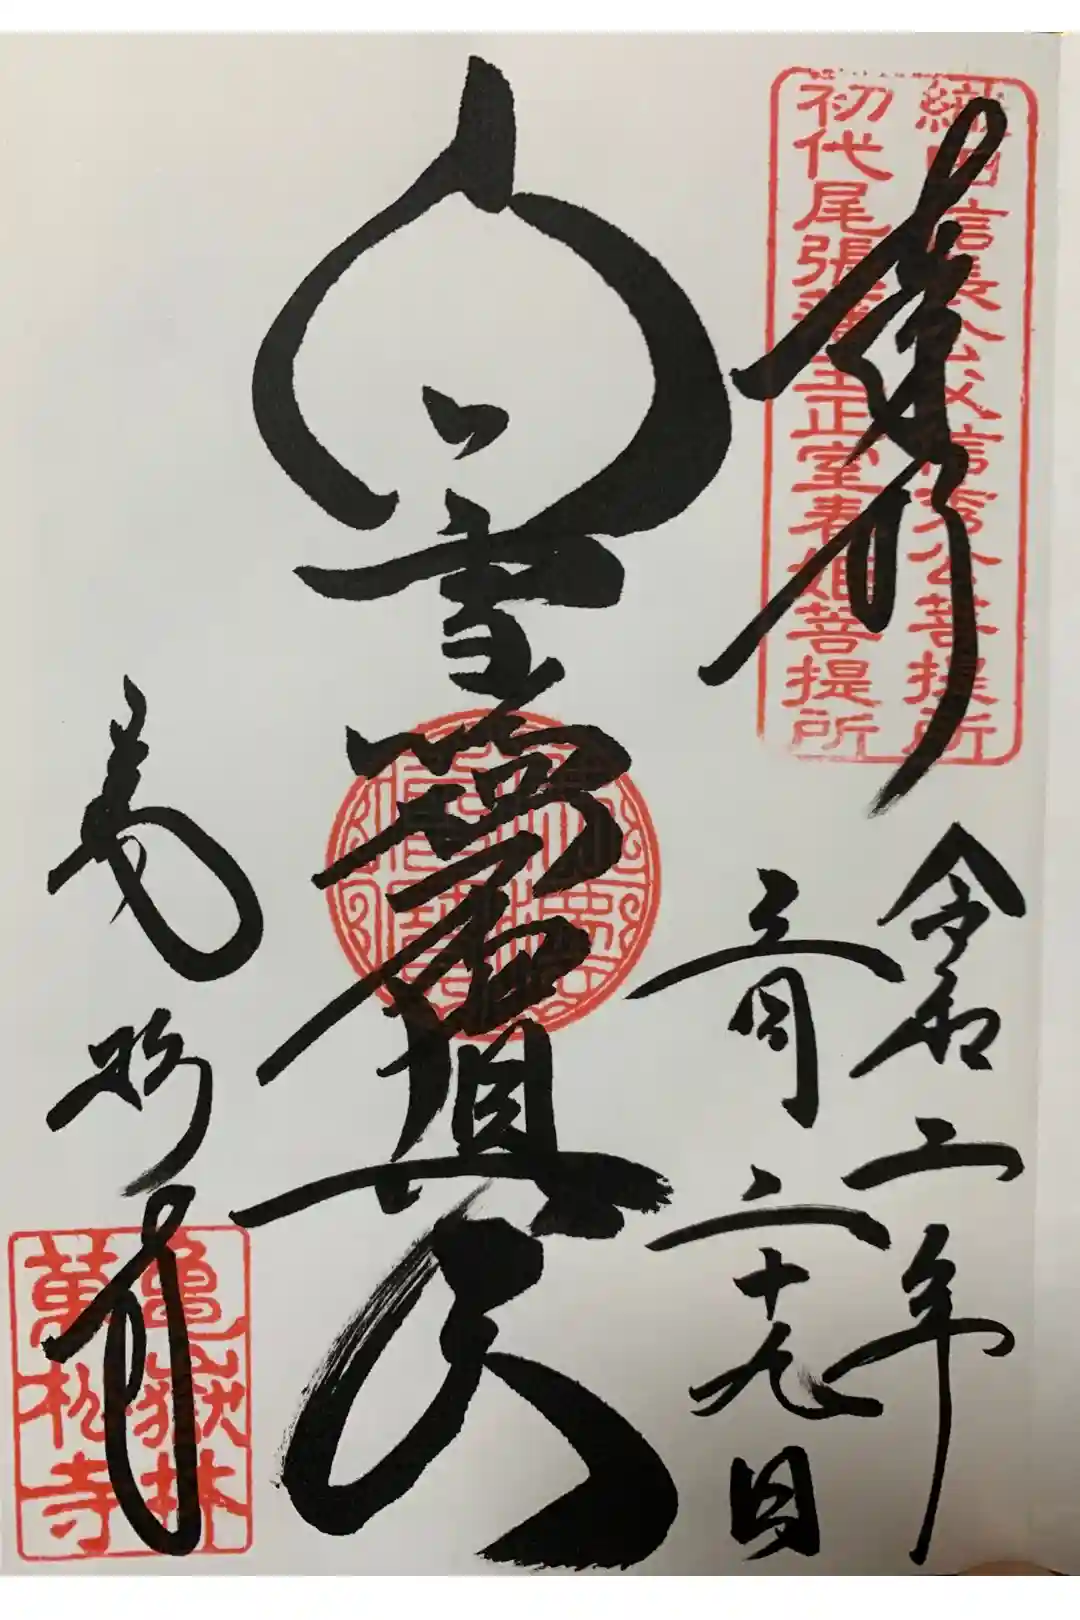 奉拝
織田信長公父信秀公菩提所
初代尾張藩主正室春姫菩提所
令和二年
三月二十九日
白雪
真天
萬松寺
亀嶽林
萬松寺